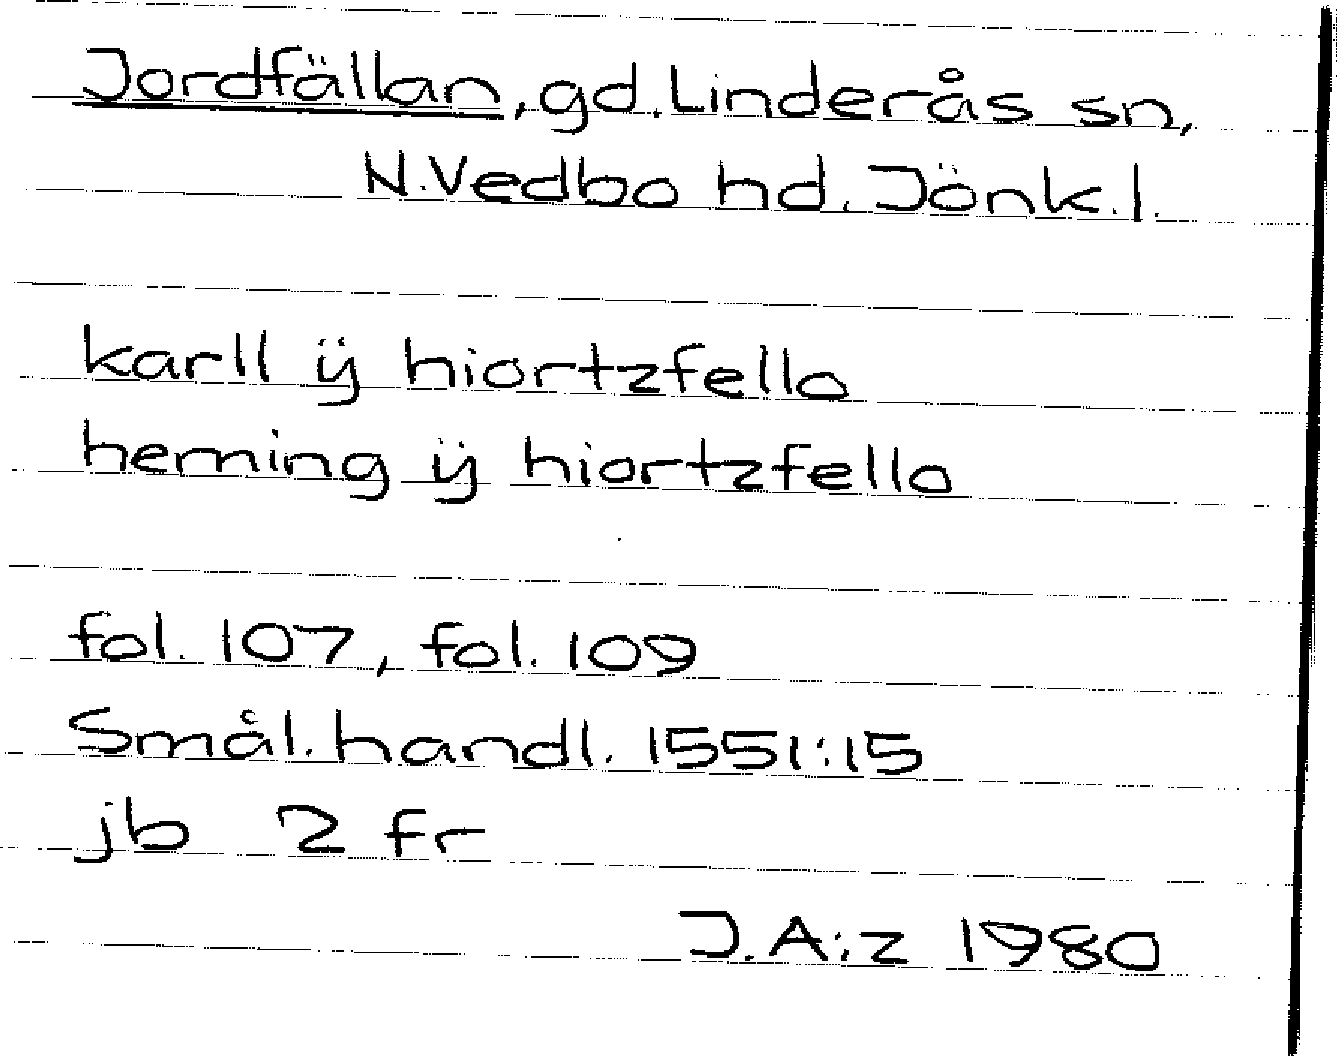 Jordfällan, gd. Linderås sn,
N. Vedbo hd. Jönk. l.
karll ÿ hiortzfello
herning ÿ hiortzfello
fol. 107, fol. 109
Smål. handl. 1551:15
jb 2 fr
J.A:z 1980